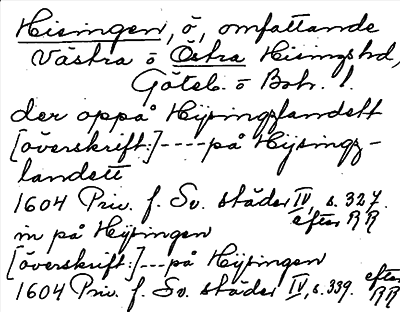 Hisingen, ö, omfattande
Västra o Östra Hisings hd,
Göteb. o Boh. l.
der oppå Hijsingzlandett
[överskrift:]----på Hijsingz-
landett
1604 Priv. f. Sv. städer IV, s. 327.
efter RR
in på Hijsingen
[överskrift:]---på Hijsingen
1604 Priv. f. Sv. städer IV, s. 339. efter
RR